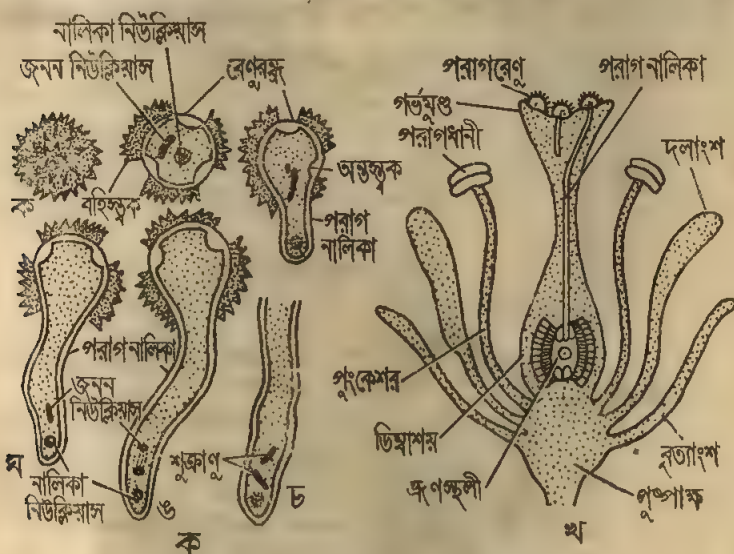 নালিকা নিউক্লিয়াস
জনন নিউক্লিয়াস
রেণুরন্ধ্র
ক
বহিস্ত্বক
অন্তস্ত্বক
পরাগ
নালিকা
পরাগ নালিকা
জনন
নিউক্লিয়াস
ঘ
নালিকা
নিউক্লিয়াস
ঙ
শুক্রাণু
চ
ক
পরাগরেণু
পরাগ নালিকা
গর্ভমুণ্ড
পরাগধানী
দলাংশ
পুংকেশর
ডিম্বাশয়
ভ্রূণস্থলী
বৃত্যাংশ
পুষ্পাক্ষ
খ